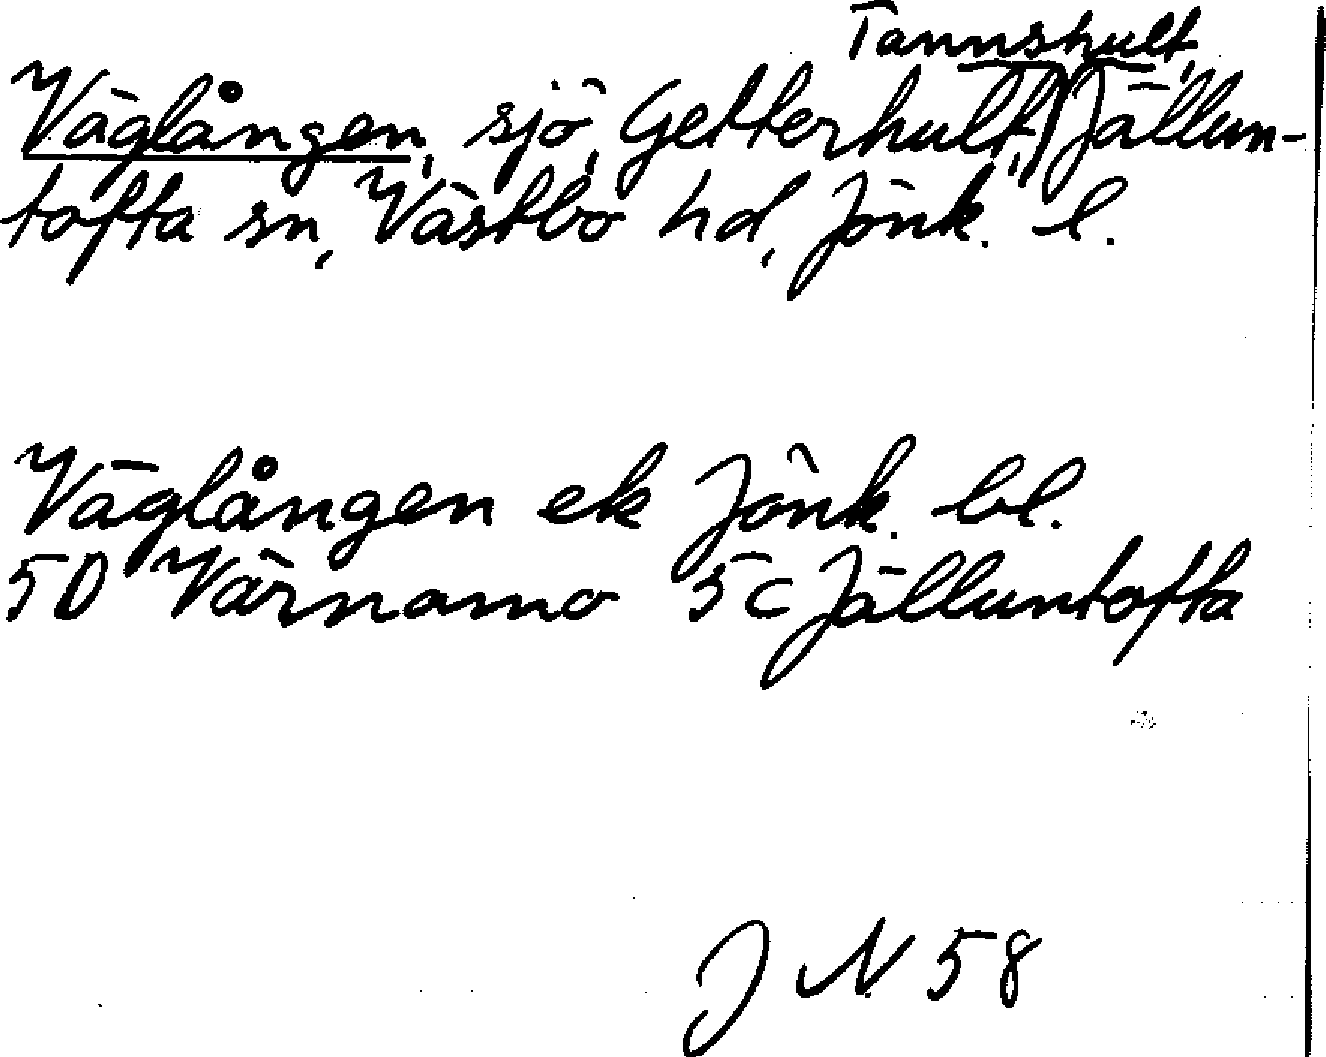 Tannshult,
Väglången, sjö, Getterhult, Jällun-
tofta sn, Västbo hd, Jönk. l.
Väglången ek Jönk. bl.
5D Värnamo 5C Jälluntofta
J N 58